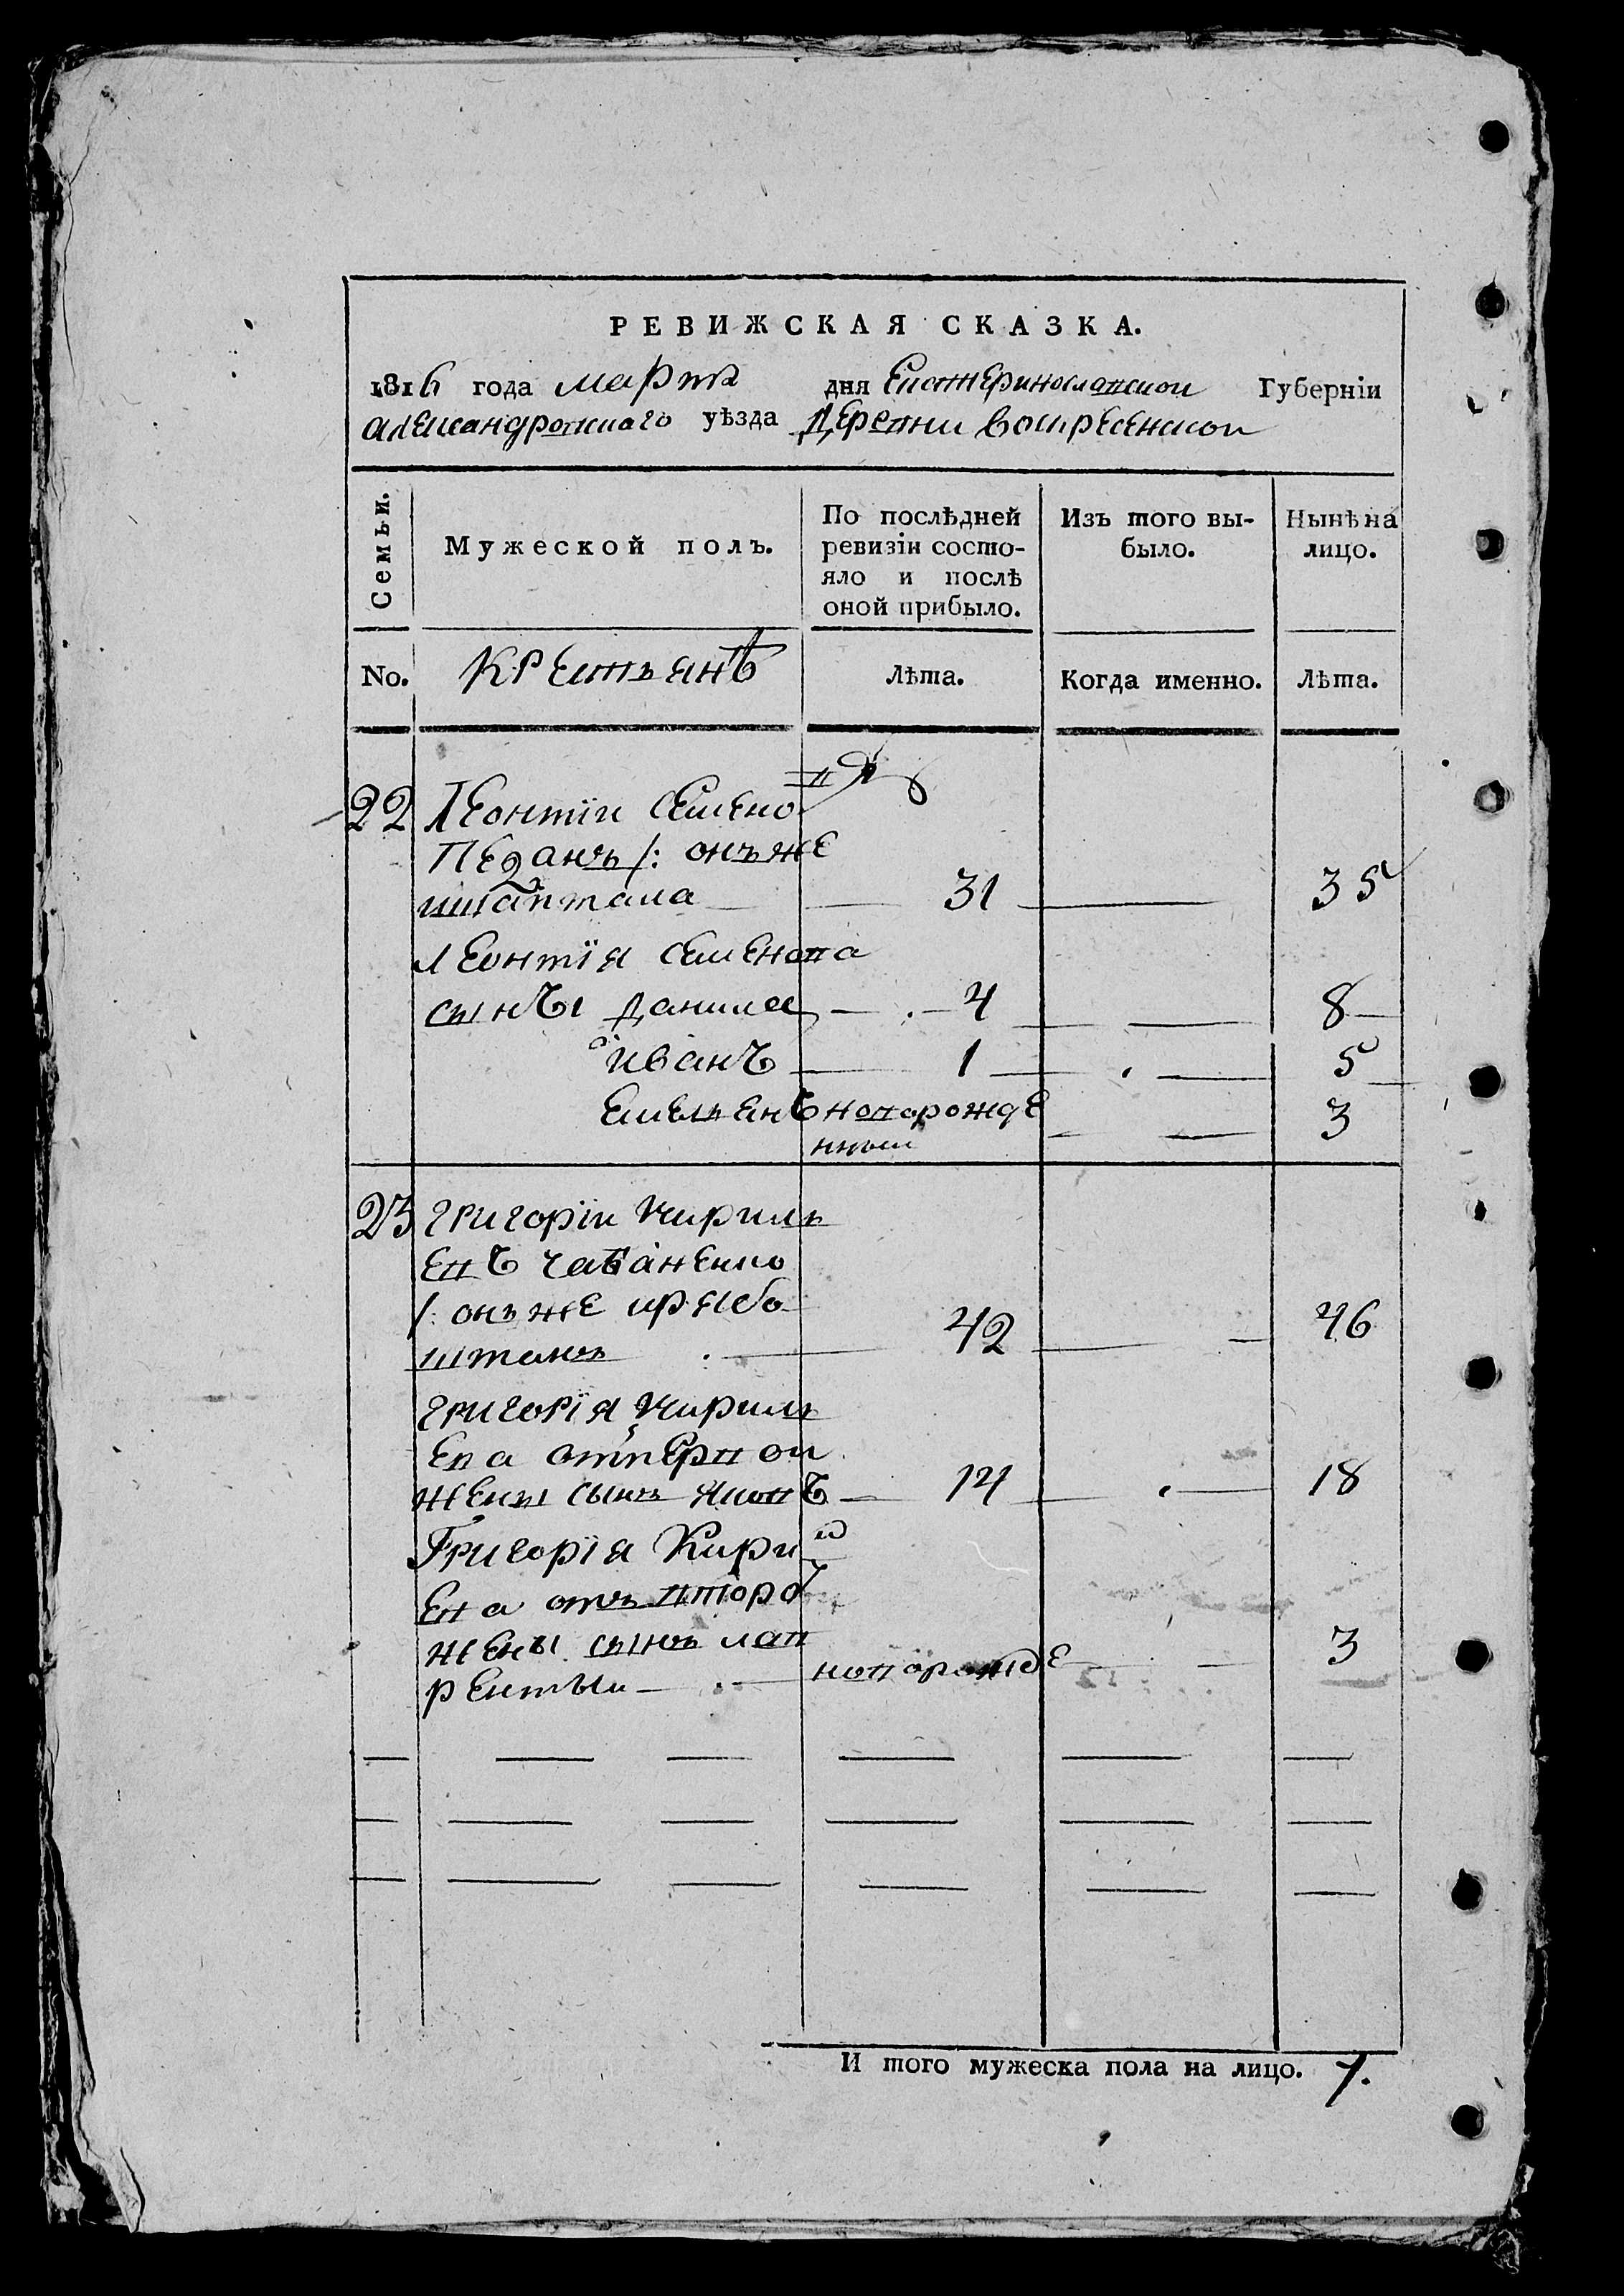 РЕВИЖСКАЯ СКАЗКА.
1816 года марта дня Екатеринославской Губерніи
александровскаго уѣзда Деревни Воскресенской
Семьи.
Мужеской полъ.
По послѣдней
ревизіи состо-
яло и послѣ
оной прибыло.
Изъ того вы-
было.
Нынѣ на
лицо.
No. Крестьянѣ Лѣта. Когда именно. Лѣта.
22 Леонтїи Семено
въ
онъже
31 35
Леонтїя Семенова
сынъı Данила 4 8
Иванъ 1 5
Емельянъ новорожде 3
нныи
23 Григорїи Кирилъ
евъ чабаненко
/: онъже
42 46
Григорїя Кирилъ
ева отпервои
жены сынъ яковъ 14 18
Григорїя Кирил
ева отъ второй
жены сынъ лав
рентъи новорожде 3
И того мужеска пола на лицо. 7.